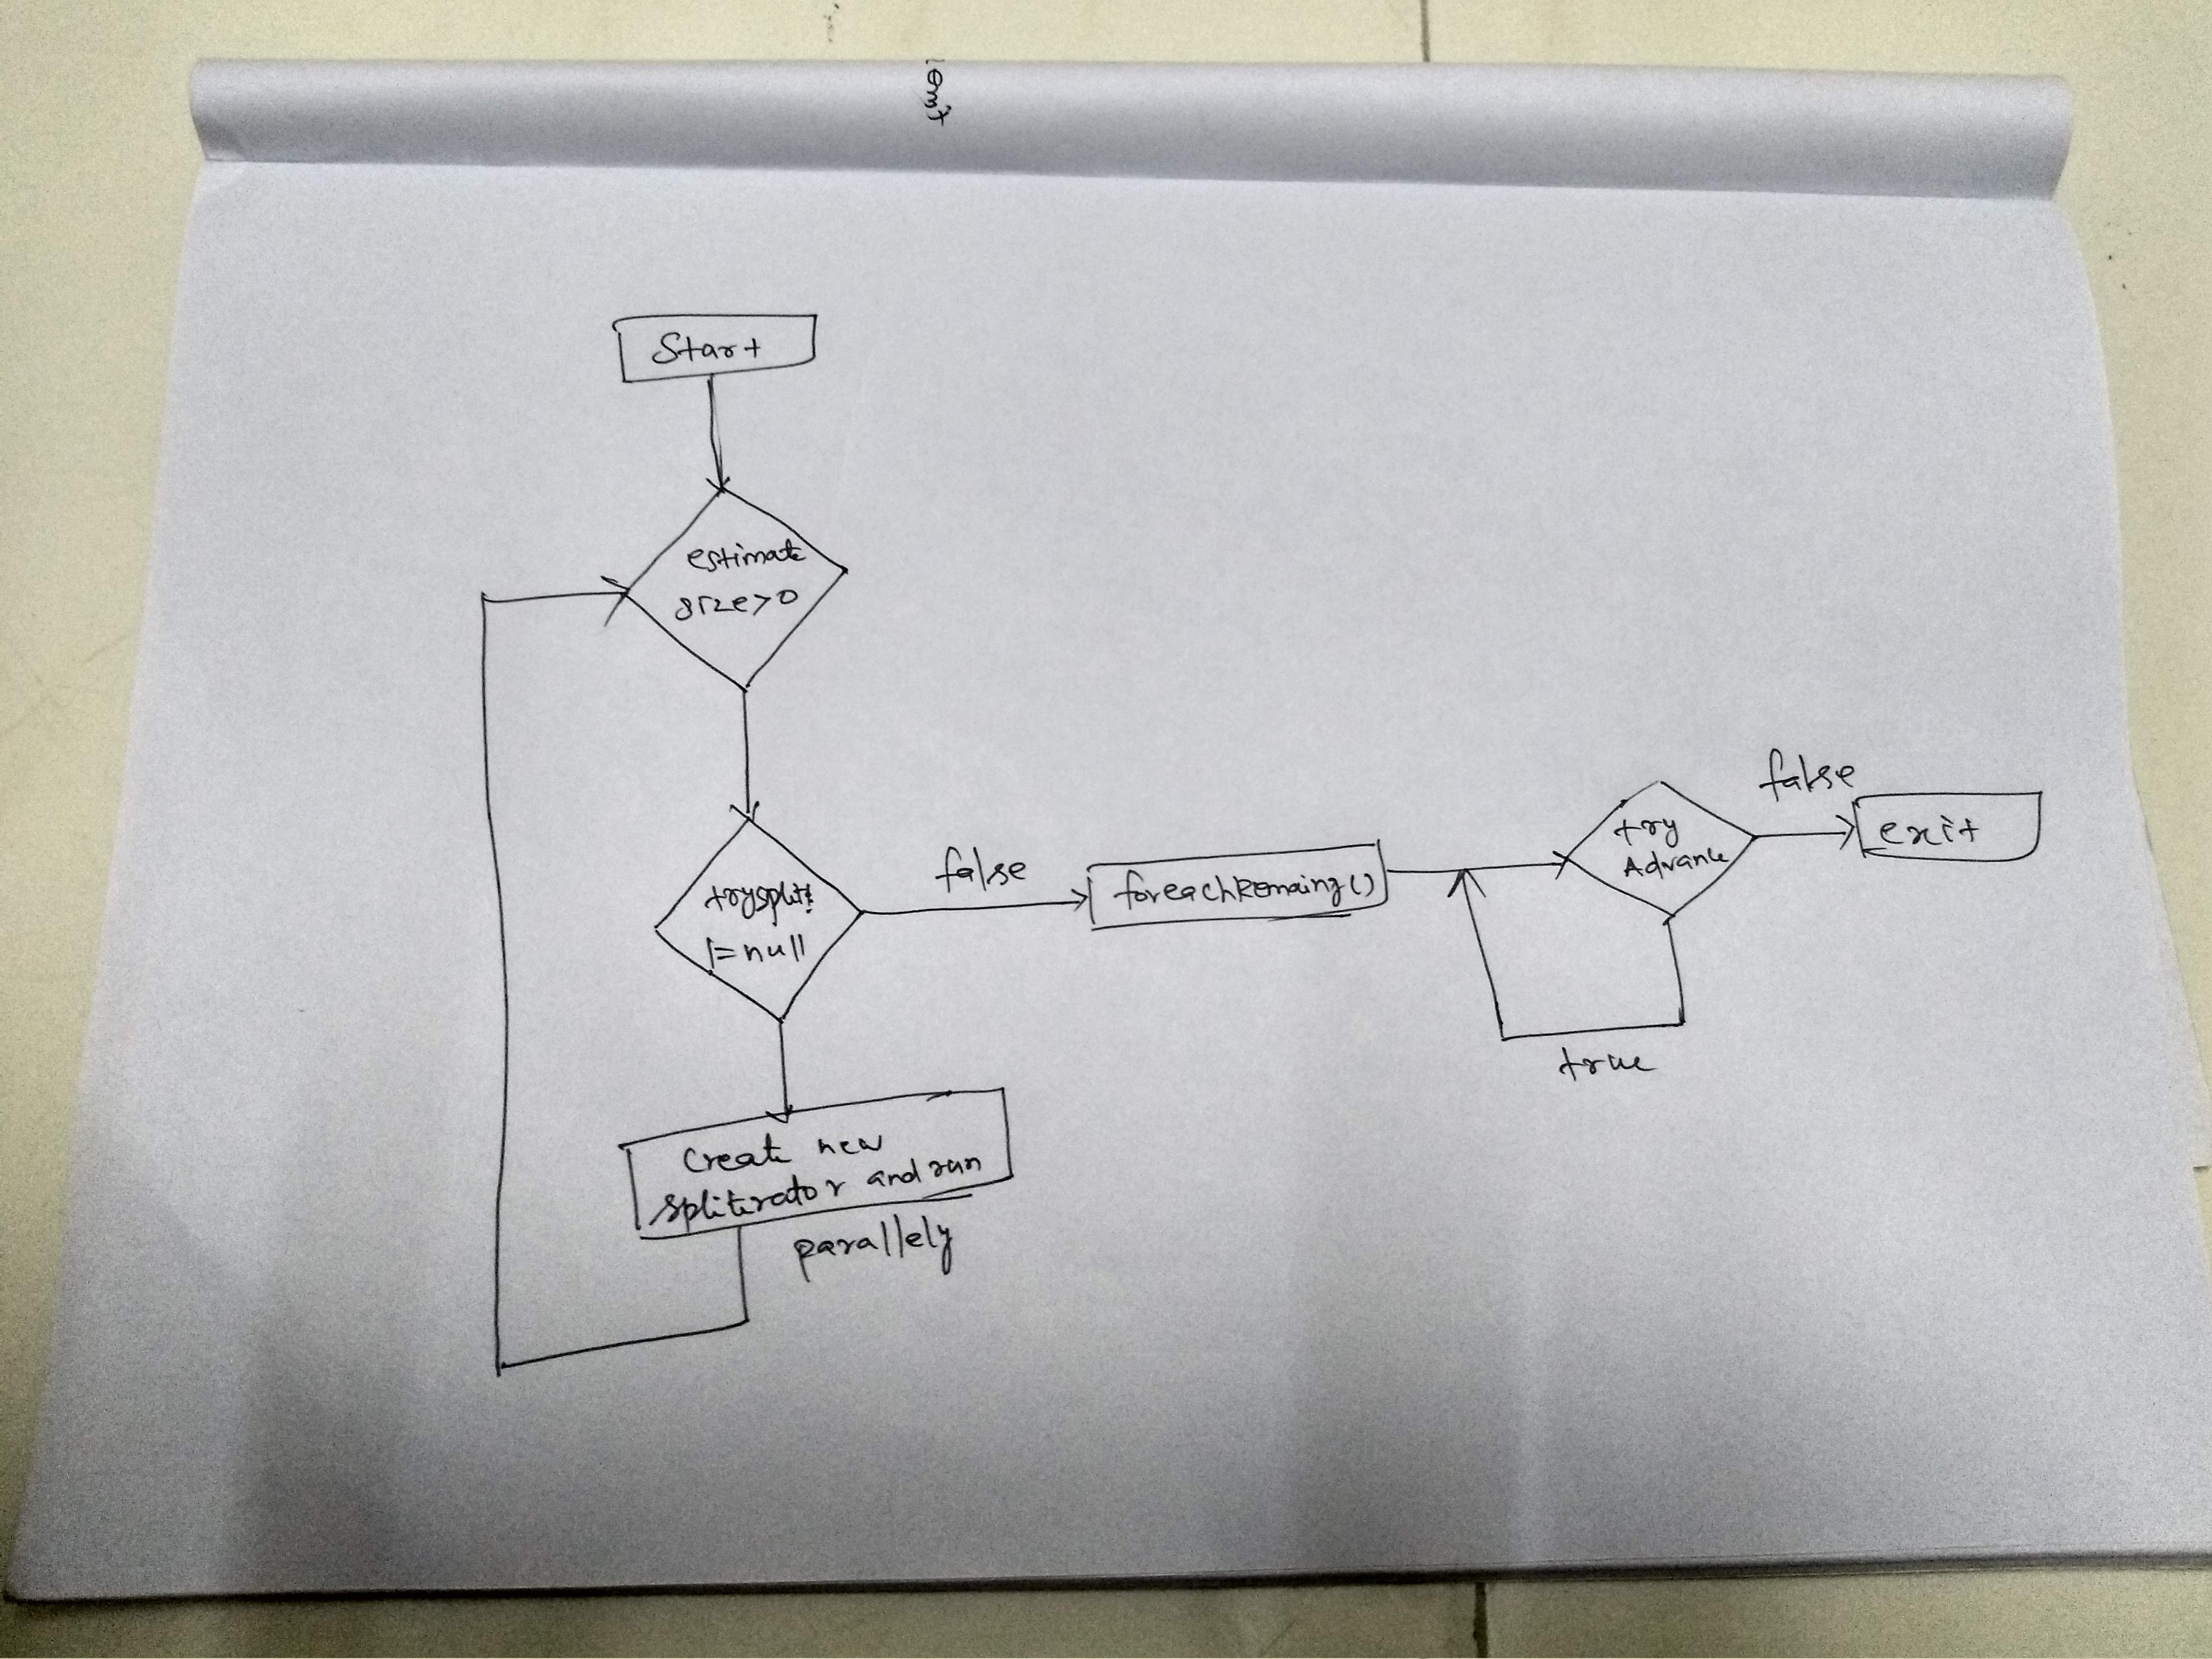 Start
estimate
size>0
trysplit
!=null
false
foreachRemaing()
try
Advance
false
exit
true
Create new
spliterator and run
parallely